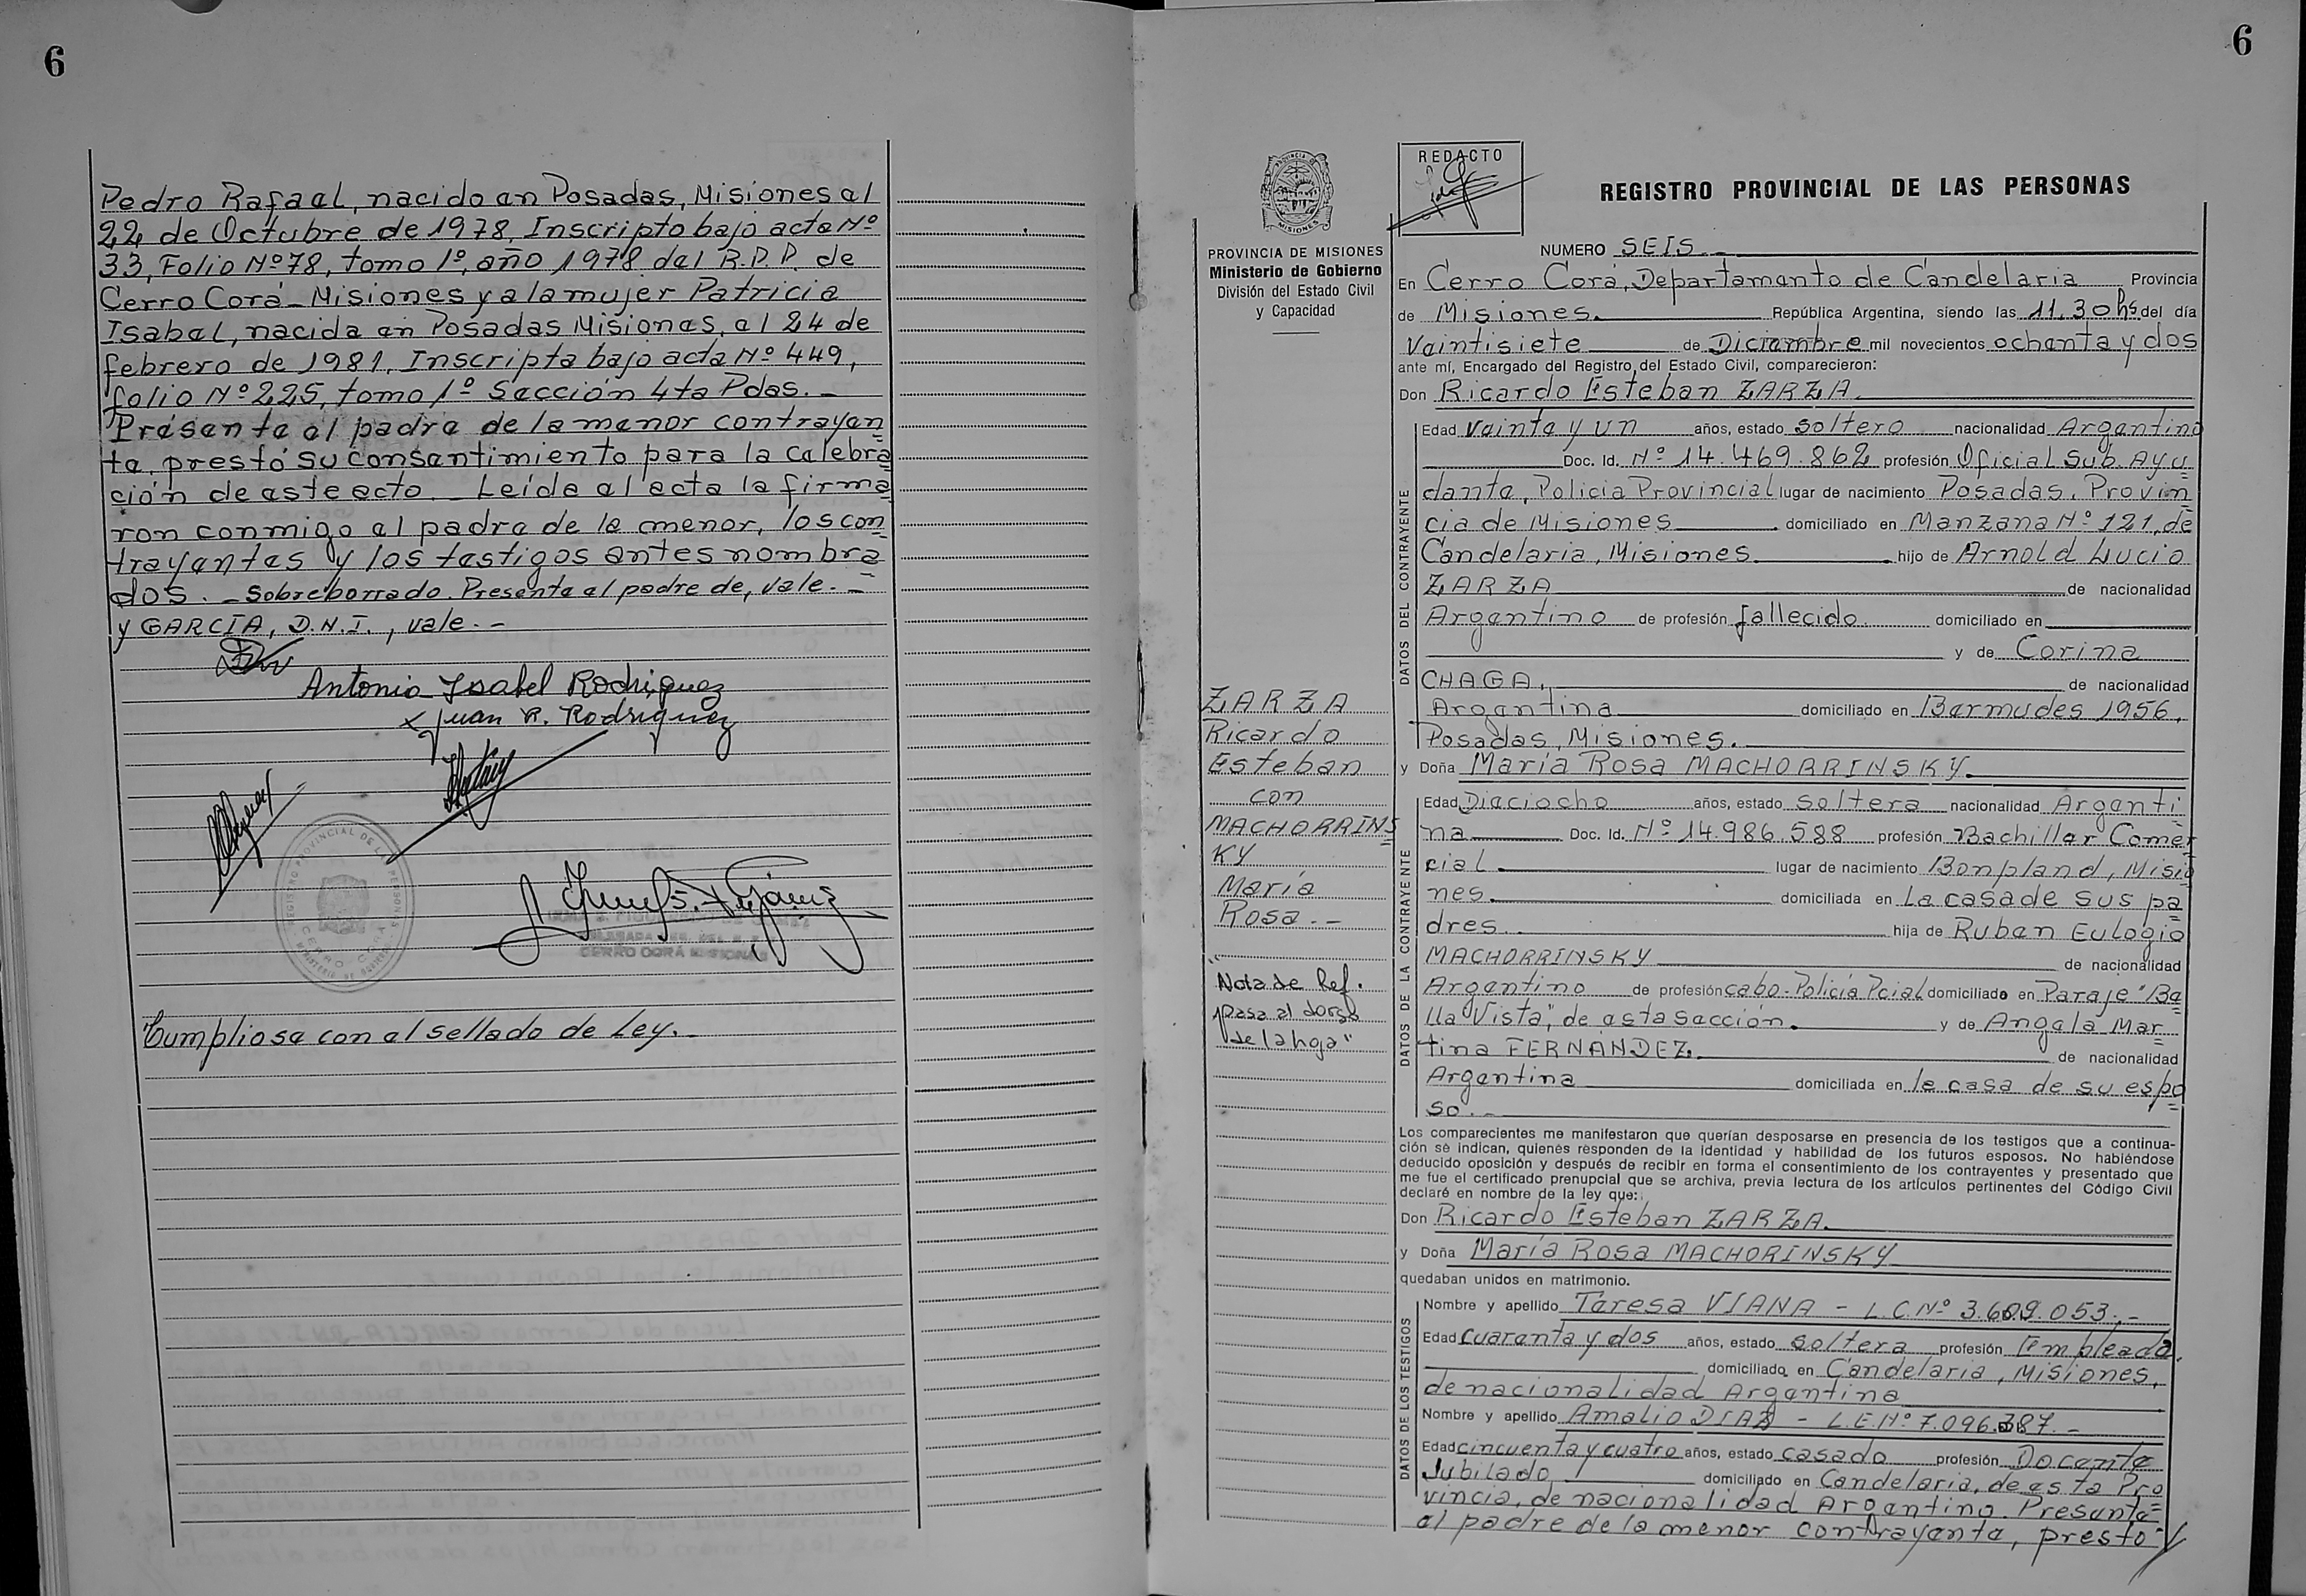 6
Pedro Rafael, nacido en Posadas, Misiones el
22 de Octubre de 1978, Inscripto bajo acta Nº
33, Folio Nº 78, tomo 1º, año 1978 del R.P.P. de
Cerro Corá - Misiones y a la mujer Patricia
Isabel, nacida en Posadas Misiones, el 24 de
febrero de 1981, Inscripta bajo acta Nº 449,
folio Nº 225, tomo 1º Sección 4ta Pdas. -
Presente el padre de la menor contrayen=
te, prestó su consentimiento para la celebra=
ción de este acto. - Leída el acta la firma=
ron conmigo el padre de la menor, los con=
trayentes y los testigos antes nombra=
dos. - Sobreborrado. Presente el padre de, vale. -
y GARCIA, D.N.I., vale. -
Antonia Ysabel Rodriguez
Juan R. Rodriguez
REGISTRO PROVINCIAL DE LAS PERSONAS
CERRO CORA
CERRO CORÁ MISIONES
Cumpliose con el sellado de Ley. -
6
PROVINCIA DE MISIONES
Ministerio de Gobierno
División del Estado Civil
y Capacidad
ZARZA
Ricardo
Esteban
con
MACHORRINS=
KY
María
Rosa. -
"Nota de Ref.
pasa al dorso
de la hoja"
REDACTO
REGISTRO PROVINCIAL DE LAS PERSONAS
NUMERO SEIS. -
En Cerro Corá, Departamento de Candelaria Provincia
de Misiones. República Argentina, siendo las 11,30 hs del día
Veintisiete de Diciembre mil novecientos ochenta y dos
ante mí, Encargado del Registro del Estado Civil, comparecieron:
Don Ricardo Esteban ZARZA.
DATOS DEL CONTRAYENTE
Edad Veinte y un años, estado soltero nacionalidad Argentino
Doc. Id. Nº 14.469.862 profesión Oficial Sub. Ayu=
dante, Policia Provincial lugar de nacimiento Posadas, Provin=
cia de Misiones domiciliado en Manzana Nº 121, de
Candelaria, Misiones. hijo de Arnold Lucio
ZARZA de nacionalidad
Argentino de profesión fallecido. domiciliado en
y de Corina
CHAGA, de nacionalidad
Argentina domiciliado en Bermudes 1956,
Posadas, Misiones.
y Doña María Rosa MACHORRINSKY.
DATOS DE LA CONTRAYENTE
Edad Dieciocho años, estado soltera nacionalidad Argenti=
na Doc. Id. Nº 14.986.588 profesión Bachiller Comer=
cial lugar de nacimiento Bonpland, Misio=
nes. domiciliada en La casa de sus pa=
dres. hija de Ruben Eulogio
MACHORRINSKY de nacionalidad
Argentino de profesión cabo-Policía Pcial domiciliado en Paraje "Be=
lla Vista", de esta sección. y de Angela Mar=
tina FERNANDEZ. de nacionalidad
Argentina domiciliada en la casa de su espo=
so. -
Los comparecientes me manifestaron que querían desposarse en presencia de los testigos que a continua-
ción se indican, quienés responden de la identidad y habilidad de los futuros esposos. No habiéndose
deducido oposición y después de recibir en forma el consentimiento de los contrayentes y presentado que
me fue el certificado prenupcial que se archiva, previa lectura de los artículos pertinentes del Código Civil
declaré en nombre de la ley que:
Don Ricardo Esteban ZARZA.
y Doña María Rosa MACHORINSKY
quedaban unidos en matrimonio.
DATOS DE LOS TESTIGOS
Nombre y apellido Teresa VIANA - L.C. Nº 3.609.053. -
Edad cuarenta y dos años, estado soltera profesión Empleada,
domiciliado en Candelaria, Misiones,
de nacionalidad Argentina
Nombre y apellido Amalio DIAZ - L.E. Nº 7.096.387. -
Edad cincuenta y cuatro años, estado casado profesión Docente
Jubilado domiciliado en Candelaria, de esta Pro=
vincia, de nacionalidad Argentino. Presente
el padre de la menor contrayente, prestó